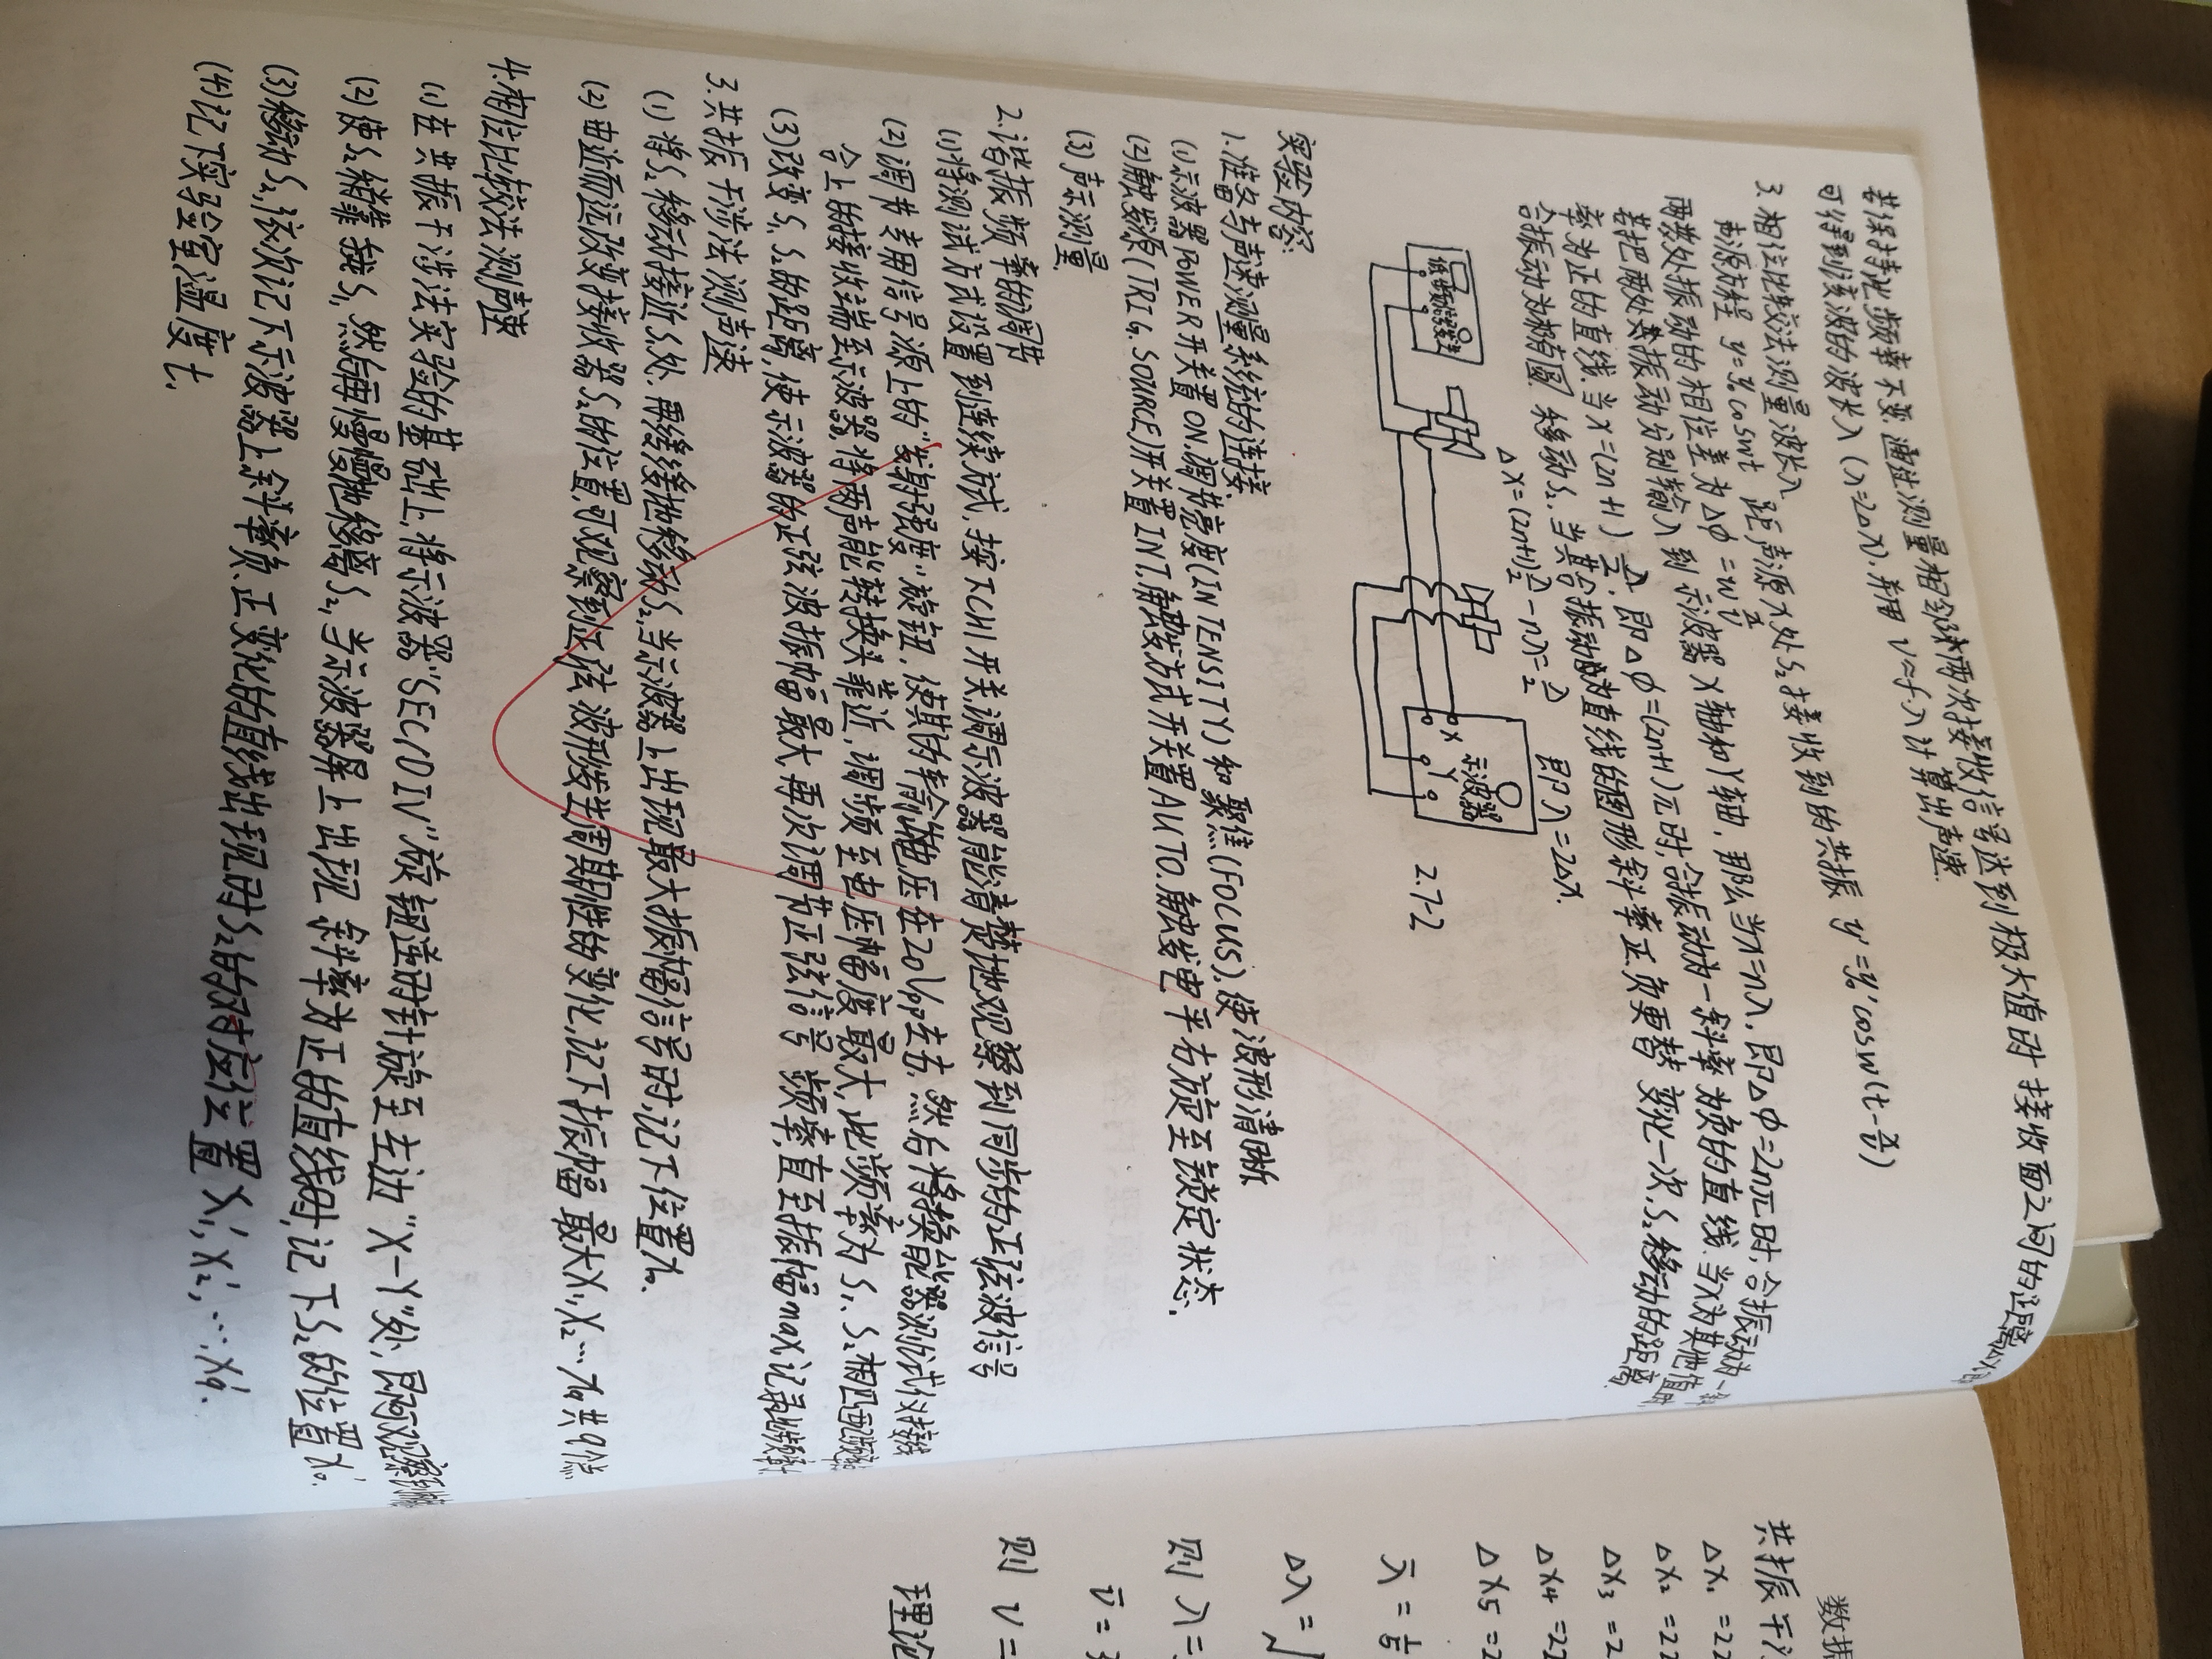 若保持地频率不变.通过测量相邻两次接收信号达到极大值时接收面之间的距离△X即
可得到该波的波长λ(λ=2△X).并用 v=fλ计算出声速.
3.相位比较法测量波长λ
声源方程 y=y₀coswt 距声源X处S₂接收到的共振 y'=y₀'cosw(t-x/v)
两波处振动的相位差为△φ=w x/v
若把两处共振动分别输入到示波器X轴和Y轴,那么当x=nλ,即△φ=2nπ时,合振动为一斜
率为正的直线.当x=(2n+1)λ/2,即△φ=(2n+1)π时,合振动为一斜率为负的直线.当X为其他值时,
合振动为椭圆 移动S₂.当其合振动为直线的图形斜率正负更替变化一次,S₂移动的距离.
△X=(2n+1)λ/2-nλ=λ/2 则λ=2△X.
示波器
X Y
2.7-2
实验内容:
1.准备与声速测量系统的连接.
(1)示波器POWER开关置ON.调节亮度(INTENSITY)和聚焦(FOCUS),使波形清晰
(2)触发源(TRIG.SOURCE)开关置INT.触发方式开关置AUTO.触发电平右旋至锁定状态.
(3)声示测量
2.谐振频率的调节
(1)将测试方式设置到连续方式.按下CH1开关调示波器能清楚地观察到同步的正弦波信号
(2)调节专用信号源上的"发射强度"旋钮,使其的输出电压在20Vp-p左右.然后将换能器测试仪接线
合上的接收端至示波器.将两能转换头靠近,调频至电压幅度最大,此频率为S₁、S₂相匹配频率
(3)改变S₁、S₂的距离,使示波器的正弦波振幅最大再次调节正弦信号频率,直至振幅max.记录此频率f.
3.共振干涉法测声速
(1)将S₂移动接近S₁处.再缓缓地移动S₂,当示波器上出现最大振幅信号时,记下位置X₀.
(2)由近而远改变接收器S₂的位置,可观察到正弦波形发生周期性的变化,记下振幅最大X₁,X₂…X₉共9个点.
4.相位比较法测声速
(1)在共振干涉法实验的基础上,将示波器"SEC/DIV"旋钮逆时针旋至左边"X-Y"处,则可观察到椭圆
(2)使S₂稍靠拢S₁,然后再慢慢地移离S₂,当示波器屏上出现斜率为正的直线时,记下S₂的位置X₀'.
(3)移动S₂,依次记下示波器上斜率负、正变化的直线出现时S₂的对应位置X₁',X₂',…X₉'.
(4)记下实验室温度t.
数据
共振干
△X₁ =22
△X₂ =22
△X₃ =2
△X₄ =22
△X₅ =2
λ̄ = 1/5
△λ=√
则λ=
v̄ = 3
则 v =
理论